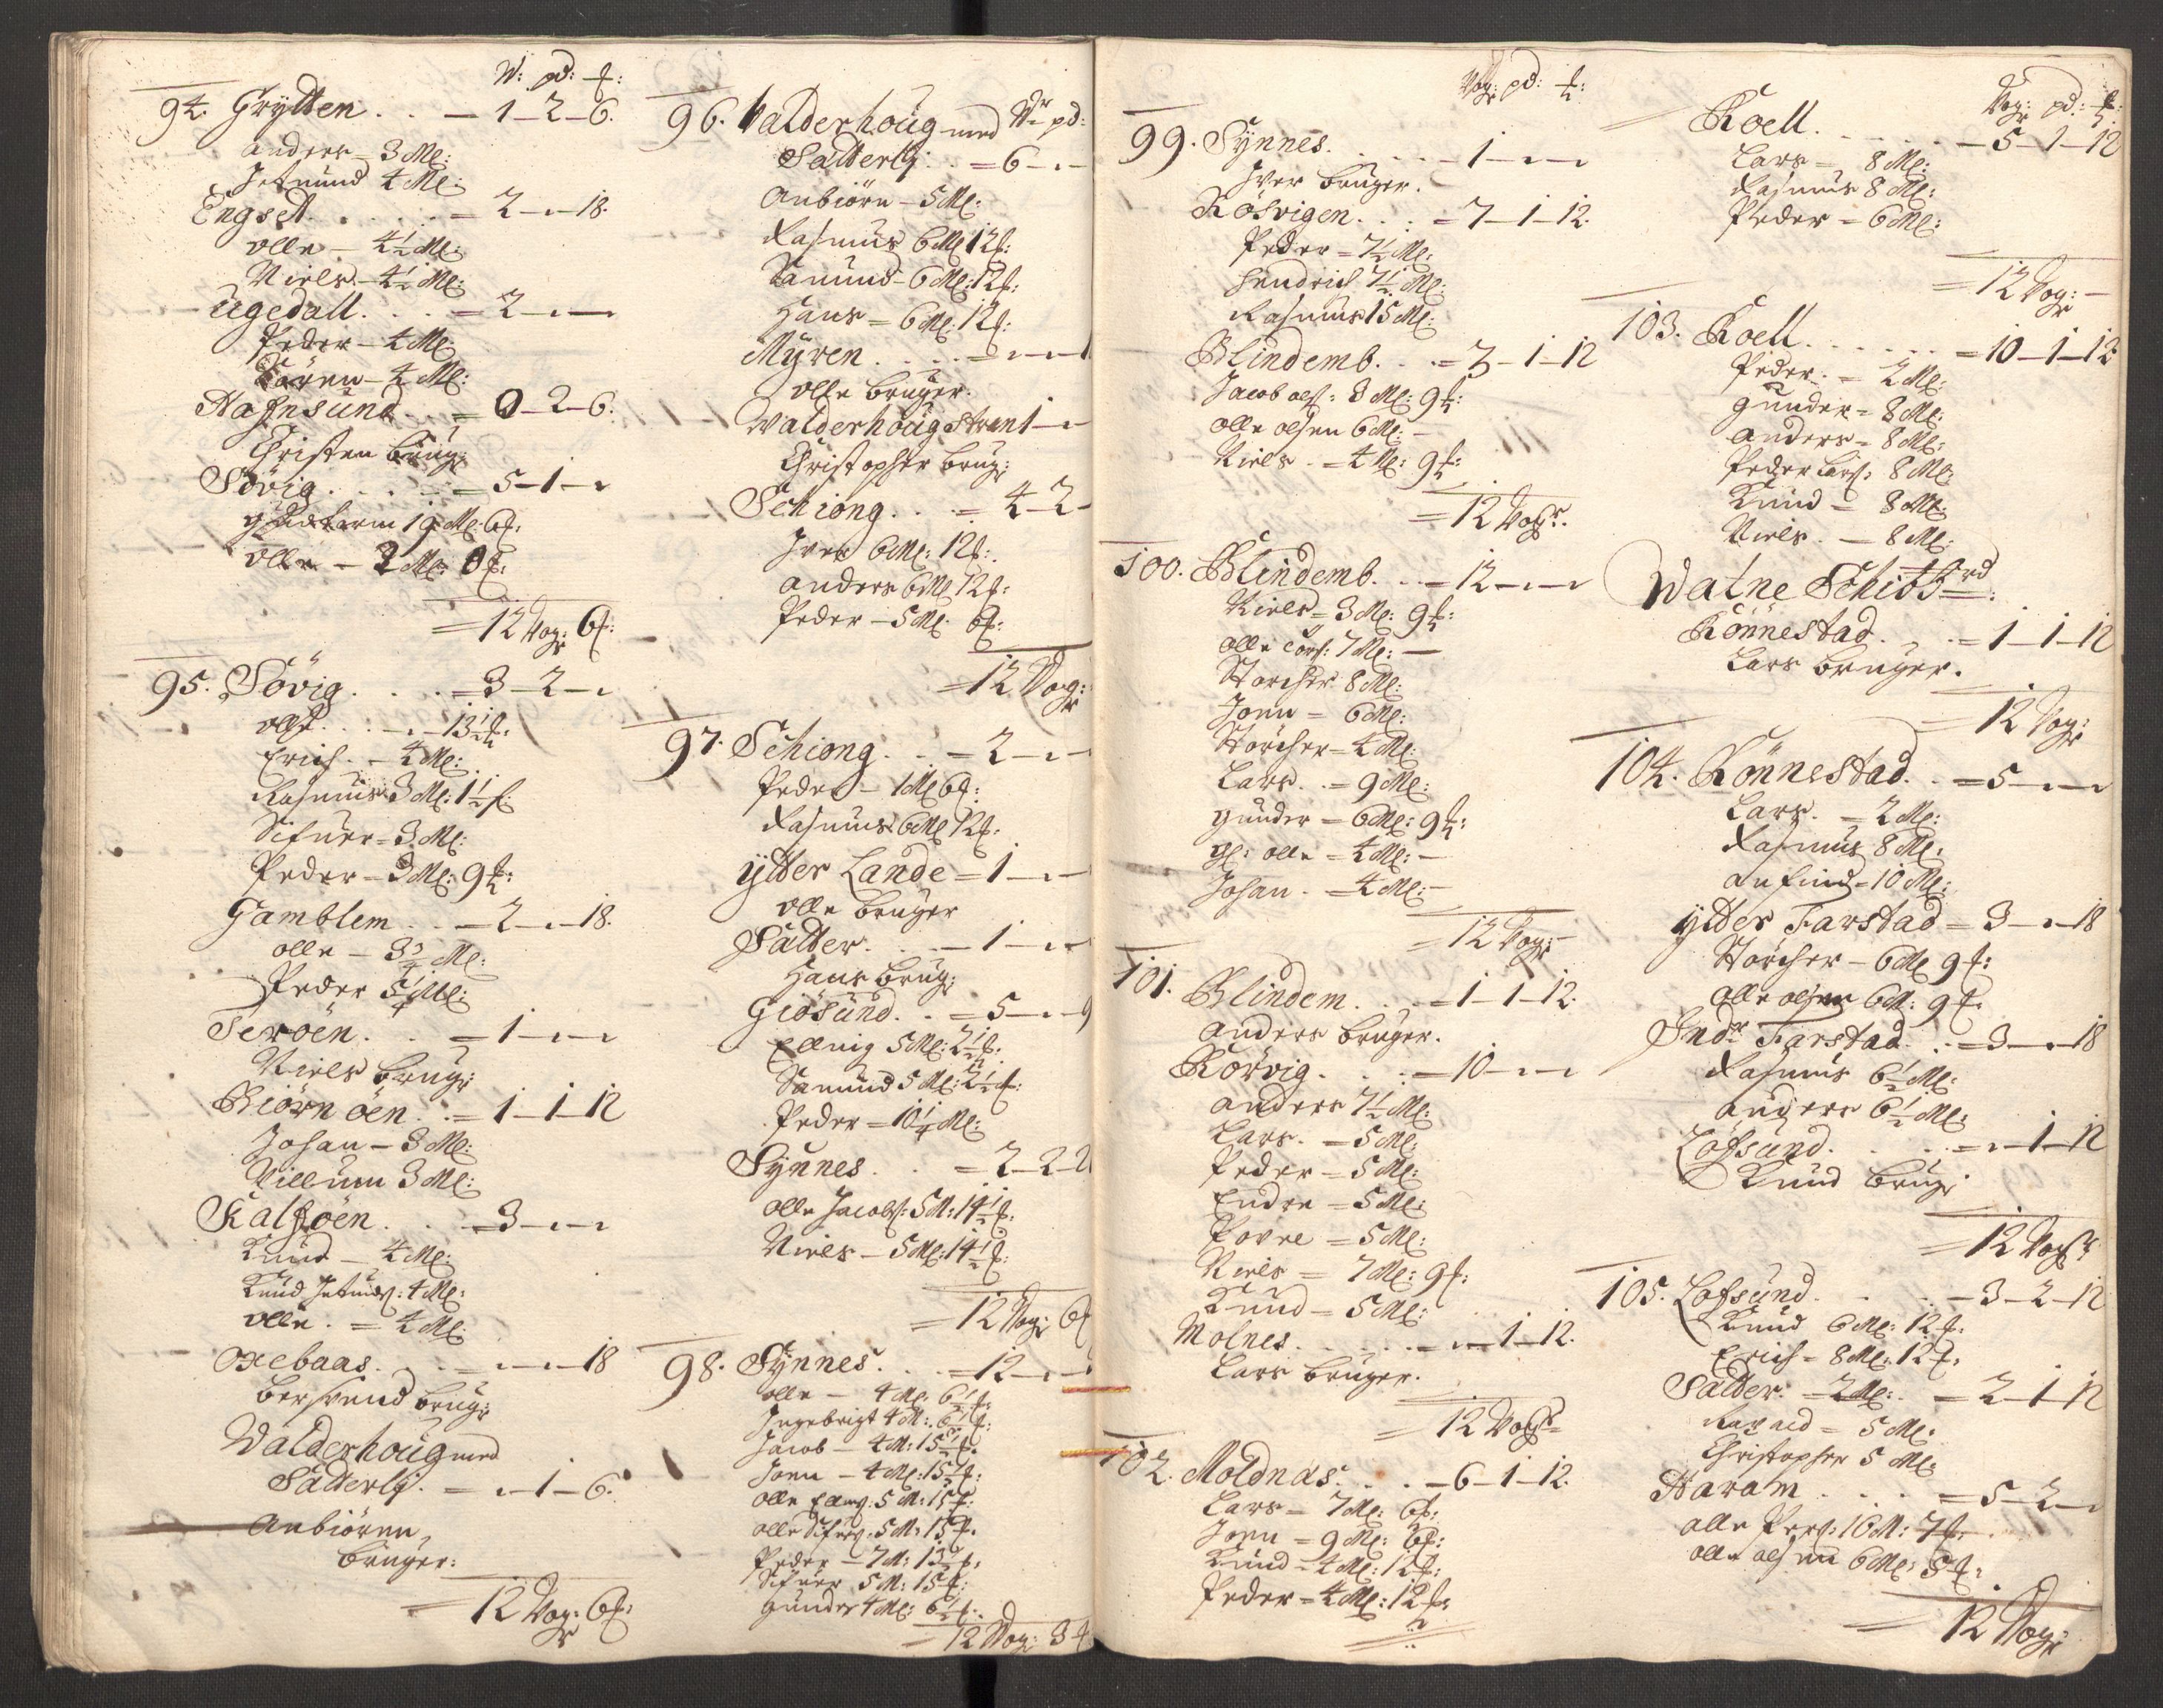 W: pd: £:
94. Grytten . . — 1–2–6.
Anders – 3 Ml:
Jetmund 4 Ml:
Engset . . . . = 2–„–18.
Olle – 4½ Ml:
Niels – 4½ Ml:
Ugedall . . . = 2–„–„
Peder – 4 Ml:
Sören – 4 Ml:
Hafnsund . . = 0–2–6:
Christen brug:
Sövig . . . . = 5–1–„
Olle – 2 Ml: 0 £:
= 12 Vog: 6 £:
95. Sövig . . . = 3–2–„
Olle . . . – „ – 13½ £:
Erich . – 4 Ml:
Rasmus 3 Ml: 1½ £
Sifuer – 3 Ml:
Peder – 3 Ml: 9 £:
Gamblem . . – 2–„–18.
Olle – 3¾ Ml:
Peder 5¼ Ml:
Teröen . . – 1–„–„
Niels brug:
Biörnöen . . = 1–1–12
Johan – 3 Ml:
Villum 3 Ml:
Kalföen . . – 3–„–„
Knud – 4 Ml:
Knud Jetmds: 4 Ml:
Olle . = 4 Ml:
Oxebaas . . = „–„–18
Bersvend brug:
Walderhoüg med
Sätterlj . = „–1–6.
Anbiören
bruger:
= 12 Vog: 6 £:
96. Walderhoüg med Vr pd:
Sätterlj . . = 6–„–
Anbiörn – 5 Ml:
Rasmus 6 Ml 12 £:
Samund – 6 Ml: 12 £:
Hans = 6 Ml: 12 £:
Myren . . . . = „–„–1
Olle bruger.
Walderhoüg Stran 1–„
Christopher brug:
Schiong . . . = 4–2–
Iver 6 Ml: 12 £:
Anders 6 Ml 12 £:
Peder – 5 Ml. 6 £:
= 12 Vog:
97. Schiong . . = 2–„–
Peder – 1 Ml 6 £:
Rasmus 6 Ml 12 £:
Ytter Lande = 1–„–
Olle bruger
Sätter . . . – 1–„–
Hans brug:
Giösund . . = 5–„–9
Elling 5 Ml: 2½ £:
Samund 5 Ml: 2½ £:
Peder = 10¼ Ml:
Synnes . . = 2–2–2
Olle Jacobs: 5 M: 14½ £:
Niels – 5 Ml: 14½ £:
= 12 Vog: 6 £
98. Synnes . . . = 12–„–
Olle – 4 Ml: 6½ £:
Ingebrigt 4 M: 6½ £:
Jacob – 4 M: 15½ £:
Jonn – 4 Ml: 15½ £:
Olle Ellings: 5 M: 15 £:
Olle Sifuers: 5 M: 15 £:
Peder – 7 M: 13½ £:
Sifuer 5 M: 15 £:
Gunder 4 Ml: 6½ £:
= 12 Vog: 3 £
Vog: pd: £:
99. Synnes . . . . – 1–„–„
Iver bruger.
Rösvigen . . . = 7–1–12.
Peder = 7½ Ml:
Hendrich 7½ Ml:
Rasmus 15 Ml:
Blindemb. . . = 3–1–12
Jacob Ols: 8 Ml: 9 £:
Olle Olsen 6 Ml: –
Niels . = 4 Ml: 9 £:
= 12 Vogr.
100. Blindemb. . . = 12–„–„
Niels = 3 Ml: 9 £:
Olle Lars: 7 Ml: –
Storcher 8 Ml:
Jonn = 6 Ml:
Störcher – 4 Ml:
Lars . . = 9 Ml:
Gunder = 6 Ml: 9 £:
Gl: Olle = 4 Ml: –
Johan . = 4 Ml: –
= 12 Vog: –
101. Blindem. . . = 1–1–12.
Anders bruger.
Rörvig . . . = 10–„–„
Anders 7½ Ml:
Lars . = 5 Ml:
Peder = 5 Ml:
Endre = 5 Ml:
Povel = 5 Ml:
Niels = 7 Ml: 9 £:
Knud = 5 Ml:
Molnes . . . . . = „–1–12.
Lars bruger.
= 12 Vogr
102. Moldnäs . . . – 6–1–12.
Lars = 7 Ml: 6 £:
Jonn = 9 Ml: 6 £:
Knud – 4 Ml: 12 £:
Peder = 4 Ml: 12 £:
Vog: pd: £:
Roell . . . . . – 5–1–12
Lars = 8 Ml:
Rasmus 8 Ml:
Peder = 6 Ml:
= 12 Vog: –
103. Roell . . . . . = 10–1–12
Peder . = 2 Ml:
Gunder = 8 Ml:
Anders = 8 Ml:
Peder Lars: 8 Ml:
Knud = 8 Ml:
Niels . – 8 Ml:
Watne Schibbrd:
Rönnestad . . . = 1–1–12
Lars bruger.
= 12 Vog:
104. Rönnestad . . = 5–„–„
Lars . = 2 Ml:
Rasmus 8 Ml:
Anfind = 10 Ml:
Ytter Farstad = 3–„–18
Störcher – 6 Ml 9 £:
Olle Olsen 6 M: 9 £:
Indr Farstad . . = 3–„–18
Rasmus 6½ Ml:
Anders 6½ Ml:
Löfsund . . . . = „–1–12
Knud brug:
= 12 Vogr
105. Lofsund . . . . – 3–2–12
Knud 6 Ml: 12 £:
Erich – 8 Ml: 12 £:
Sätter . – 2 Ml: . = 2–1–12
= 5 Ml:
Christopher 5 Ml:
Haram . . . . = 5–2–„
Olle Pers: 16 M: 7 £:
Olle Olsen 6 Ml: 5 £:
12 Vog: